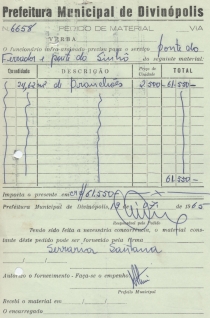 Prefeitura Municipal de Divinópolis
Nº 6658 PEDIDO DE MATERIAL VIA
VERBA
O funcionário infra-assinado precisa para o serviço ponte do
Ferrador e ponte do Sinhô do seguinte material:
Quantidade DESCRIÇÃO Preço da Unidade TOTAL
24,62 m2 de Pranchões 2.500- 61.550-
61.550-
Importa a presente em cr$ 61.550-
Prefeitura Municipal de Divinópolis, de 1965
Encarregado pelo Pedido
Tendo sido feita a necessária concorrência, o material cons-
tante dêste pedido pode ser fornecido pela firma
Serraria Santana
Autorizo o fornecimento - Faça-se o empenho
Prefeito Municipal
Recebi o material em
O encarregado